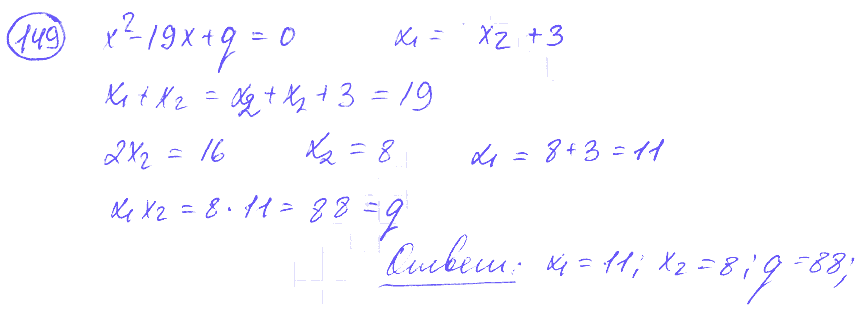 149 x² - 19x + q = 0 x₁ = x₂ + 3
x₁ + x₂ = x₂ + x₂ + 3 = 19
2x₂ = 16 x₂ = 8 x₁ = 8 + 3 = 11
x₁ x₂ = 8 · 11 = 88 = q
Ответ: x₁ = 11; x₂ = 8; q = 88;